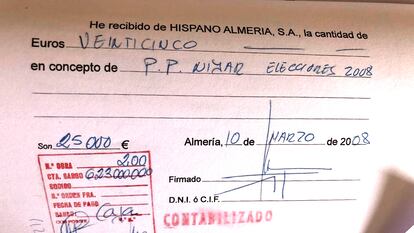 He recibido de HISPANO ALMERIA, S.A., la cantidad de
Euros VEINTICINCO
en concepto de P.P. NIJAR ELECCIONES 2008
Son 25000 €
Almería, 10 de MARZO de 2008
N.º OBRA 200
CTA. CARGO 623000000
CODIGO
N.º ORDEN FRA.
FECHA DE PAGO
BANCO Caja
Firmado
D.N.I. ó C.I.F.
CONTABILIZADO